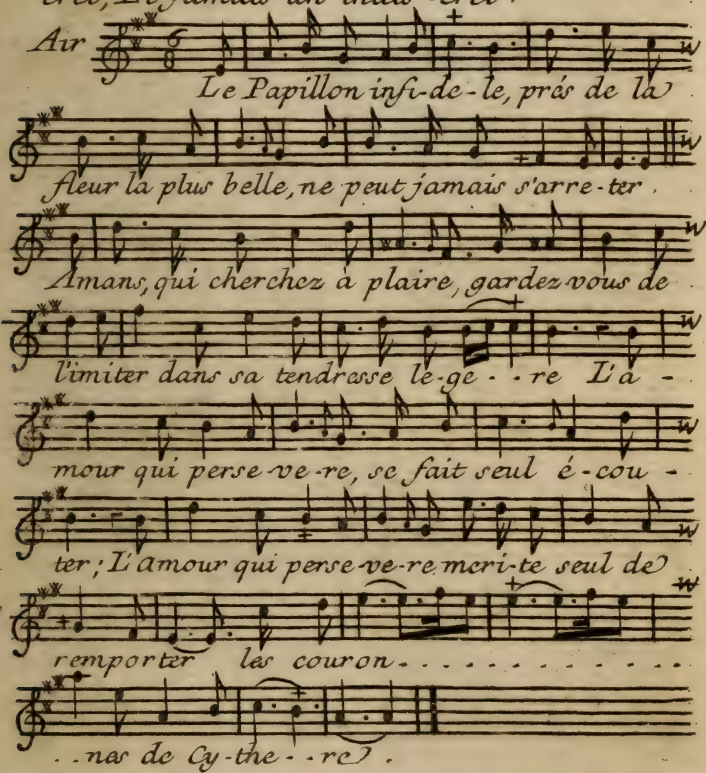 Air
Le Papillon infi-de-le, prés de la
fleur la plus belle, ne peut jamais s'arre-ter.
Amans, qui cherchez à plaire, gardez-vous de
l'imiter dans sa tendresse le-ge - - re L'a -
mour qui perse-ve-re, se fait seul é-cou -
ter; L'amour qui perse-ve-re meri-te seul de
remporter les couron - . . . . . . . . . . . .
. . nes de Cy-the - - re.